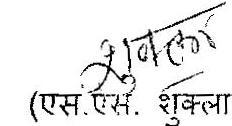 शुक्ला
(एस.एस. शुक्ला